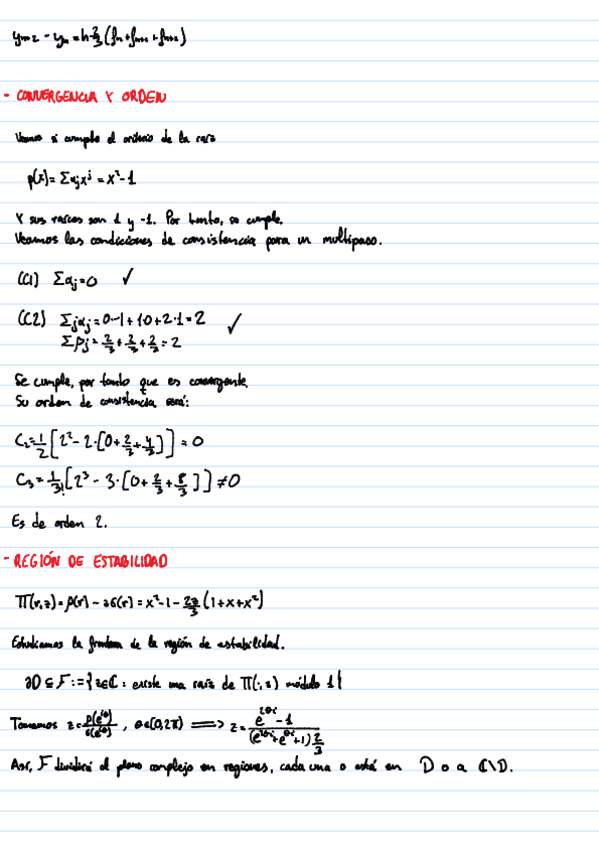 yₙ₊₂ - yₙ = h 2/3 (fₙ + fₙ₊₁ + fₙ₊₂)
- CONVERGENCIA Y ORDEN
Veamos si cumple el criterio de la raíz
p(x) = Σαⱼxʲ = x² - 1
Y sus raíces son 1 y -1. Por tanto, se cumple.
Veamos las condiciones de consistencia para un multipaso.
(C1) Σαⱼ = 0 ✓
(C2) Σjαⱼ = 0·-1 + 1·0 + 2·1 = 2 ✓
Σβⱼ = 2/3 + 2/3 + 2/3 = 2
Se cumple, por tanto que es convergente.
Su orden de consistencia será:
C₂ = 1/2 [2² - 2·[0 + 2/3 + 4/3]] = 0
C₃ = 1/3! [2³ - 3·[0 + 2/3 + 8/3]] ≠ 0
Es de orden 2.
- REGIÓN DE ESTABILIDAD
Π(r,z) = ρ(r) - zσ(r) = x² - 1 - 2z/3 (1 + x + x²)
Estudiamos la frontera de la región de estabilidad.
∂D ⊆ F := {z∈ℂ : existe una raíz de Π(·,z) módulo 1}
Tomamos z = ρ(e^{iθ})/σ(e^{iθ}), θ∈[0,2π) ⟹ z = (e^{2θi} - 1)/((e^{2θi} + e^{θi} + 1) 2/3)
Así, F dividirá el plano complejo en regiones, cada una o está en D o a ℂ\D.